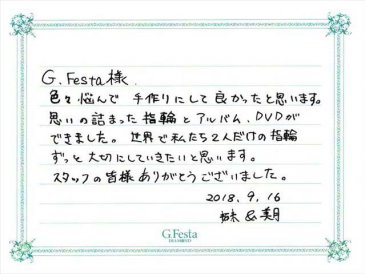 G.Festa様.
色々悩んで 手作りにして良かったと思います。
思いの詰まった指輪とアルバム、DVDが
できました。世界で私たち2人だけの指輪
ずっと大切にしていきたいと思います。
スタッフの皆様ありがとうございました。
2018.9.16
G.Festa
DIAMOND